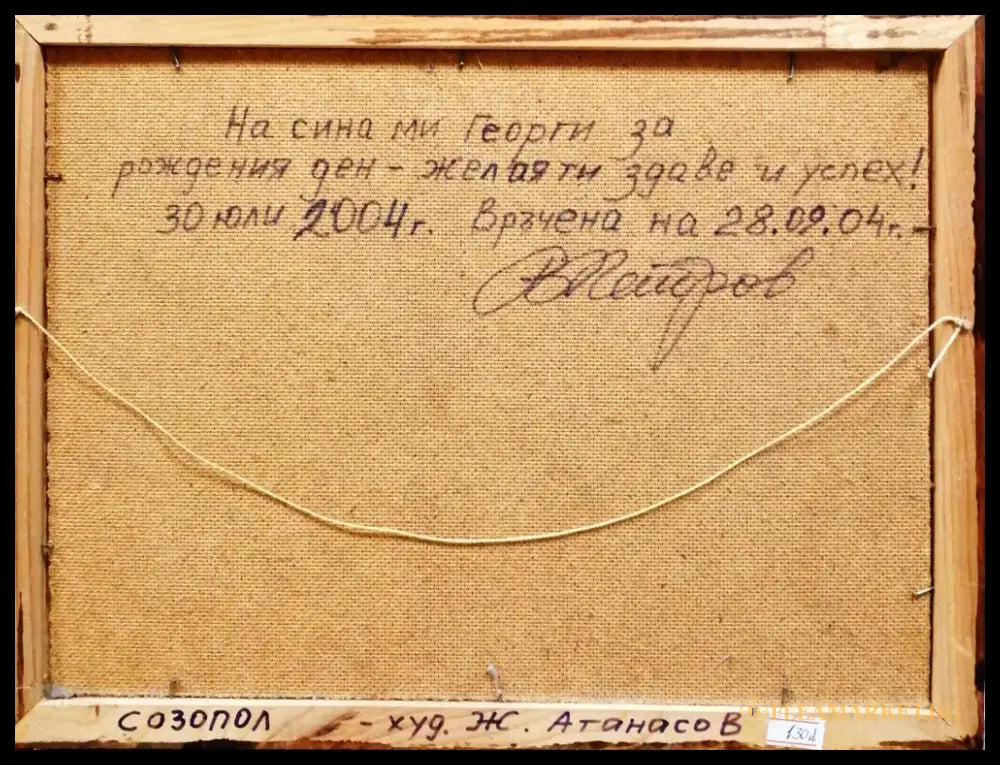 На сина ми Георги за
рождения ден - желая ти здаве и успех!
30 юли 2004г. Връчена на 28.09.04г. -
созопол - худ. Ж. Атанасов
130л